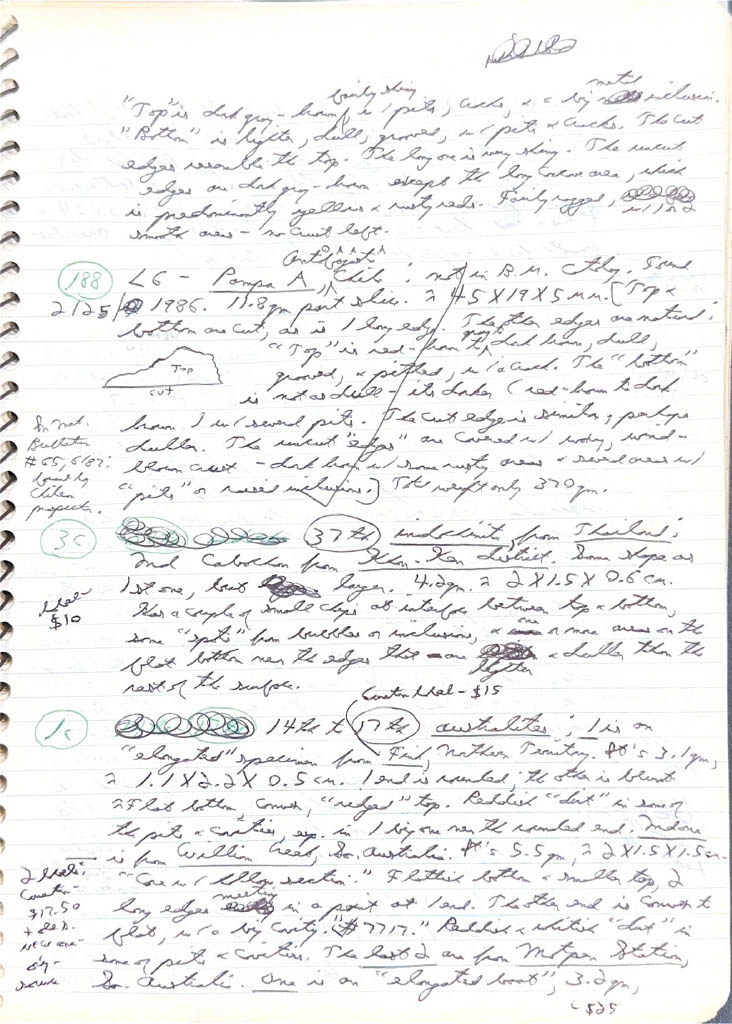 fairly shiny metal
"Top" is dark gray-brown, w/ pits, cracks, & a big inclusion.
"Bottom" is lighter, dull, grooved, w/ pits & cracks. The cut
edges resemble the top. The long one is very shiny. The uncut
edges are dark gray-brown except the long concave area, which
is predominantly yellow & rusty reds. Fairly rugged, w/ 1 or 2
smooth areas - no crust left.
Antofagasta
188 L6 - Pampa A, Chile; not in B.M. Ctlg. Found
2125/ 1986. 11.8gm part slice. ≈ 45X19X5 m.m. [Top &
bottom are cut, as is 1 long edge. The other edges are natural;
"Top" is red-brown to dark brown, dull,
Top
cut
grooved, & pitted, w/ a crack. The "bottom"
is not as dull - its darker (red-brown to dark
brown) w/ several pits. The cut edge is similar; perhaps
duller. The uncut "edges" are covered w/ wind-
blown crust - dark brown w/ some rusty areas & several areas w/
"pits" or raised inclusions.] Total weight only 370 gm.
In Met.
Bulletin
#65, 6/87:
found by
Chilean
prospector.
3c 37th indochinite, from Thailand;
2nd Cabochon from Khon-Ken district. Same shape as
1st one, but larger. 4.2gm. ≈ 2X1.5X0.6cm.
Has a couple of small chips at interface between top & bottom,
some "spots" from bubbles or inclusions, & one or more areas on the
flat bottom near the edges that are lighter & duller than the
rest of the surface.
$10
$15
1c 14th to 17th australites; 1 is an
"elongated" specimen from Finke, Northern Territory. It's 3.1gm,
≈ 1.1X2.2X0.5cm. 1 end is rounded; the other is blunt.
≈ Flat bottom & convex, "ridged" top. Reddish "dirt" in some of
the pits & cavities, esp. in 1 big one near the rounded end. 2nd one
is from William Creek, So. Australia. It's 5.5gm, ≈ 2X1.5X1.5cm.
"Core w/ section." Flattish bottom & smaller top, 2
long edges meeting in a point at 1 end. The other end is convex to
flat, w/ a big cavity. "#7717." Reddish & whitish "dirt" in
some of pits & cavities. The last 2 are from Motpen Station,
So. Australia. One is an "elongated boat", 3.2gm,
$17.50
- $25